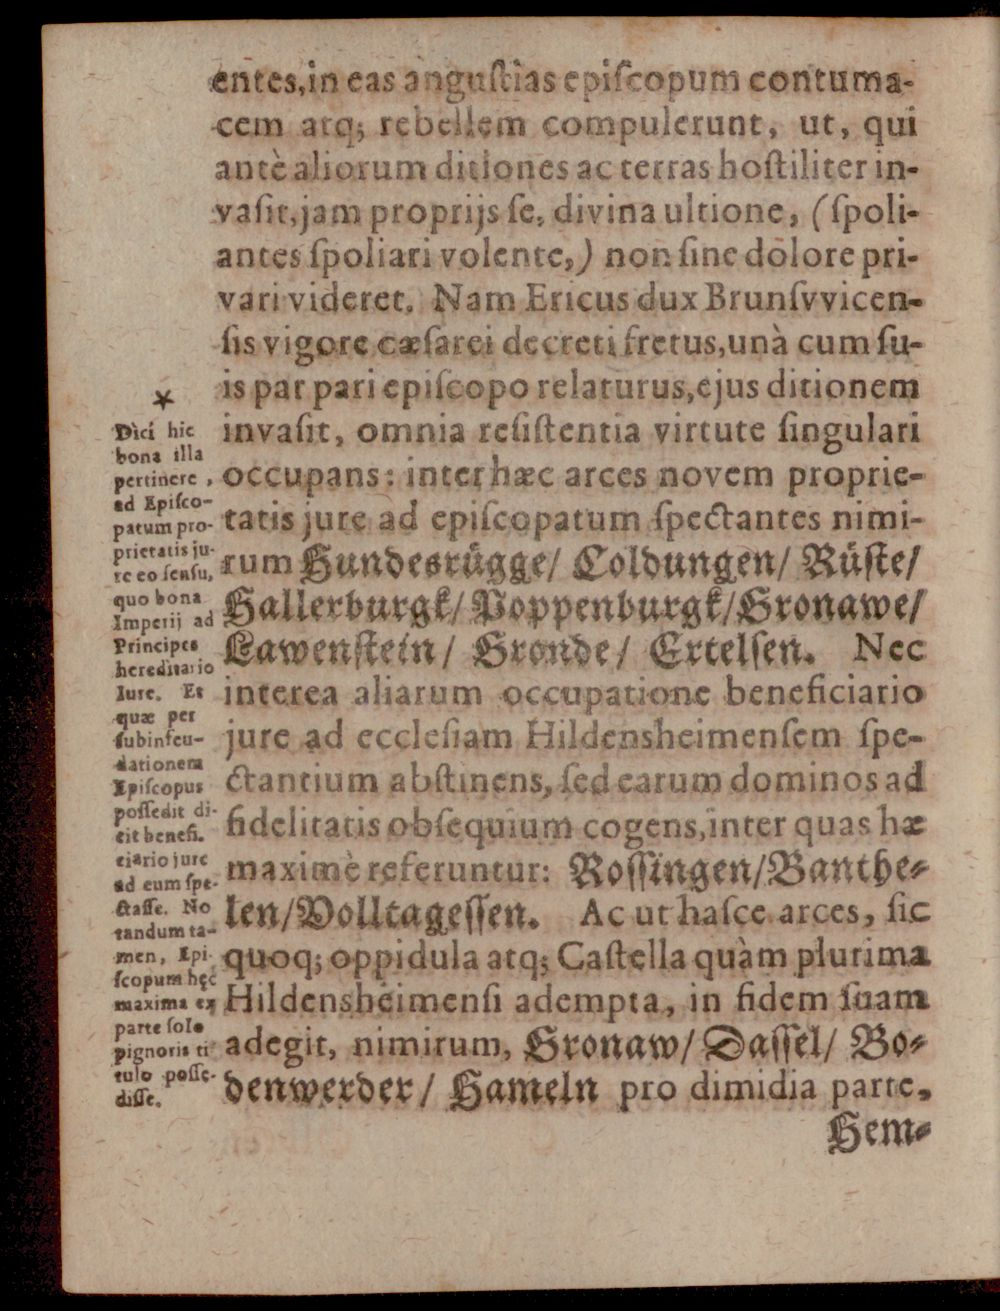 entes,in eas anguſtias epiſcopum contuma-
cem atq; rebellem compulerunt, ut, qui
antè aliorum ditiones ac terras hoſtiliter in-
vaſit,jam proprijs ſe, divina ultione, (ſpoli-
antes ſpoliari volente,) non ſine dolore pri-
vari videret. Nam Ericus dux Brunſvvicen-
ſis vigore cæſarei decreti fretus,unà cum ſu-
is par pari epiſcopo relaturus,ejus ditionem
invaſit, omnia reſiſtentia virtute ſingulari
occupans: inter hæc arces novem proprie-
tatis jure ad epiſcopatum ſpectantes nimi-
rum Hundesrügge/ Coldungen/ Rüſte/
Hallerburgk/ Poppenburgk/Gronawe/
Lawenſtein/ Gronde/ Ertelſen. Nec
interea aliarum occupatione beneficiario
jure ad eccleſiam Hildensheimenſem ſpe-
ctantium abſtinens, ſed earum dominos ad
fidelitatis obſequium cogens,inter quas hæ
maximè referuntur: Roſſingen/Banthe-
len/Volltageſſen. Ac ut haſce arces, ſic
quoq; oppidula atq; Caſtella quàm plurima
Hildensheimenſi adempta, in fidem ſuam
adegit, nimirum, Gronaw/ Daſſel/ Bo-
denwerder/ Hameln pro dimidia parte,
Hem-
*
Dici hic
bona illa
pertinere,
ad Epiſco-
patum pro-
prietatis ju-
re eo ſenſu,
quo bona
Imperij ad
Principes
hereditario
Iure. Et
quæ per
ſubinfeu-
dationem
Epiſcopus
poſſedit di-
cit benefi-
ciario jure
ad eum ſpe-
ctaſſe. No
tandum ta-
men, Epi-
ſcopum hęc
maxima ex
parte ſolo
pignoris ti
tulo poſſe-
diſſe.